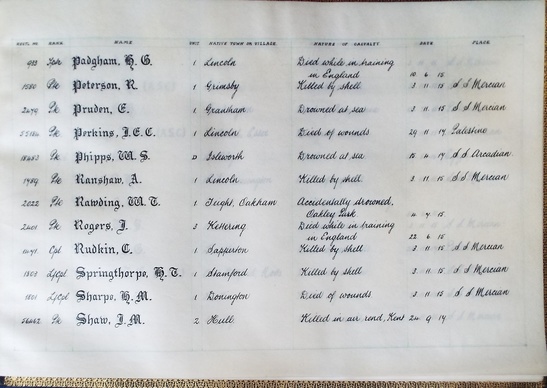 REGTL. NO. RANK NAME UNIT NATIVE TOWN OR VILLAGE. NATURE OF CASUALTY. DATE PLACE
Padgham, H. G. 1 Lincoln Died while in training
in England 10 6 15
1580 Pte Peterson, R. 1 Grimsby Killed by shell 3 11 15 S.S Mercian
2679 Pte Pruden, E. 1 Grantham Drowned at sea 3 11 15 S.S Mercian
Pte Perkins, J.E.C. 1 Lincoln Died of wounds 29 11 17 Palestine
Pte Phipps, W. S. D Isleworth Drowned at sea 15 4 17 S.S Arcadian
Pte Ranshaw, A. 1 Lincoln Killed by shell 3 11 15 S.S Mercian
2022 Pte Rawding, W. T. 1 Tught, Oakham Accidentally drowned,
Oakley Park 4 7 15
2401 Pte Rogers, J. 3 Kettering Died while in training
in England 22 6 15
Cpl Rudkin, C. 1 Sapperton Killed by shell 3 11 15 S.S Mercian
L/Cpl Springthorpe, H. T. 1 Stamford Killed by shell 3 11 15 S.S Mercian
1801 L/Cpl Sharpe, H. M. 1 Donington Died of wounds 3 11 15 S.S Mercian
Pte Shaw, J. M. 2 Hull Killed in air raid, Kent 24 9 17